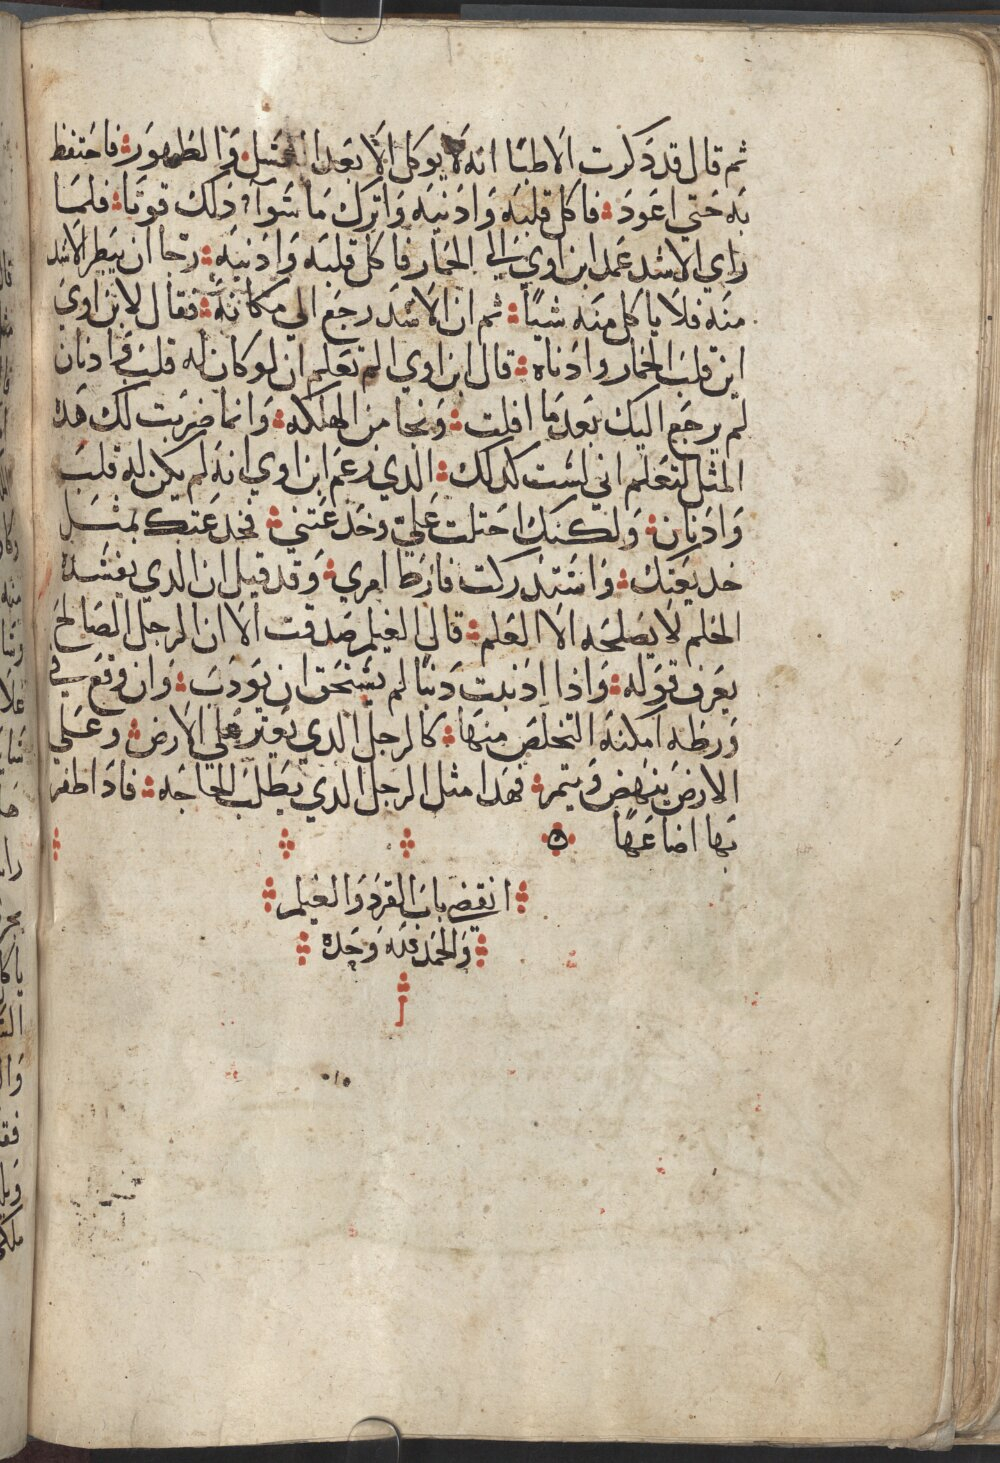 ثم قال قد ذكرت الاطبا انه لا يوكل الا بعد الغسل والطهور فاحتفظ
به حتي اعود فاكل قلبه واذنيه واترك ما سوآ ذلك قوتا فلما
راي الاسد عمل ابن اوي الي الحمار فاكل قلبه واذنيه رجا ان يتطير الاسد
منه فلا ياكل منه شيا ثم ان الاسد رجع الي مكانه فقال لابن اوي
اين قلب الحمار واذناه قال ابن اوي الم تعلم ان لو كان له قلب واذنان
لم يرجع اليك بعد ما افلت ونجا من الهلكه وانما ضربت لك هذه
المثل لتعلم اني لست كذلك الذي زعم ابن اوي انه لم يكن له قلب
واذنان ولكنك احتلت علي وخدعتني فخدعتك بمثل
خديعتك واستدركت فارط امري وقد قيل ان الذي يفسده
الحلم لا يصلحه الا العلم قال الغيلم صدقت الا ان الرجل الصالح
يعرف قوله واذا اذنبت دنبا لم يستحق ان يودب وان وقع في
ورطه امكنه التخلص منها كالرجل الدي يعثر علي الارض وعلي
الارض ينهض ويتمر فهدا مثل الرجل الدي يطلب الحاجه فادا ظفر
بها اضاعها ه
انقضي باب القرد والغيلم
والحمد لله وحده